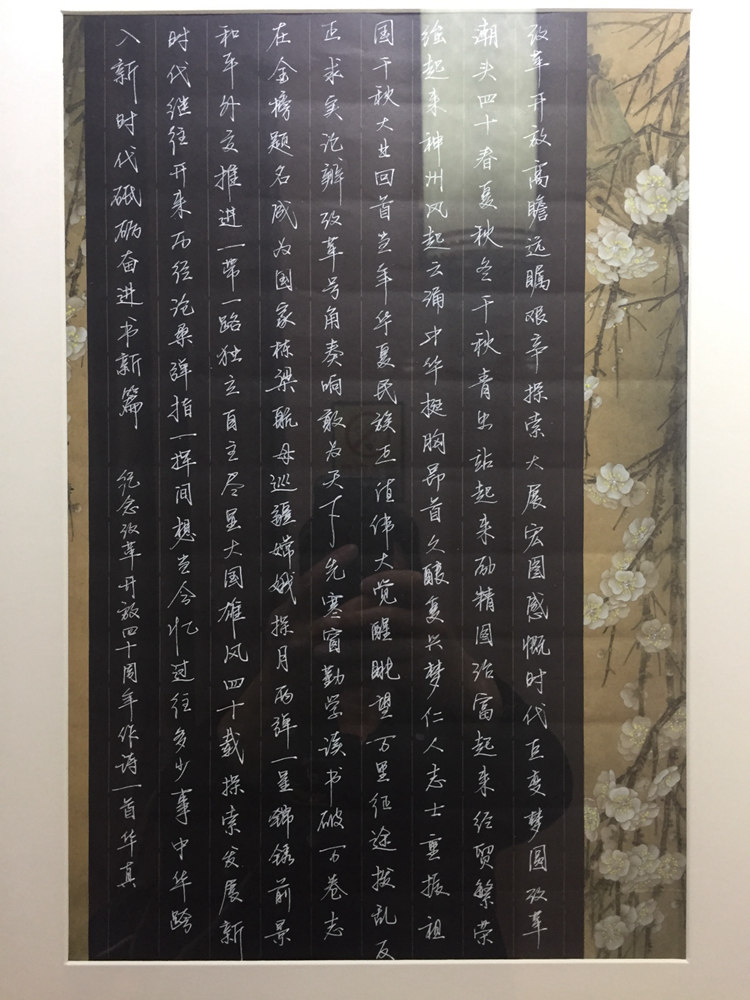 改革开放高瞻远瞩艰辛探索大展宏图感慨时代巨变梦圆改革
潮头四十春夏秋冬千秋青史站起来励精图治富起来经贸繁荣
强起来神州风起云涌中华挺胸昂首久酿复兴梦仁人志士重振祖
国千秋大业回首当年华夏民族正值伟大觉醒眺望万里征途拨乱反
正求实论辩改革号角奏响敢为天下先寒窗勤学读书破万卷志
在金榜题名成为国家栋梁航母巡疆嫦娥探月两弹一星锦绣前景
和平外交推进一带一路独立自主尽显大国雄风四十载探索发展新
时代继往开来再经论票弹指一挥间想当今忆过往多少事中华跨
入新时代砥砺奋进书新篇 纪念改革开放四十周年作诗一首华真